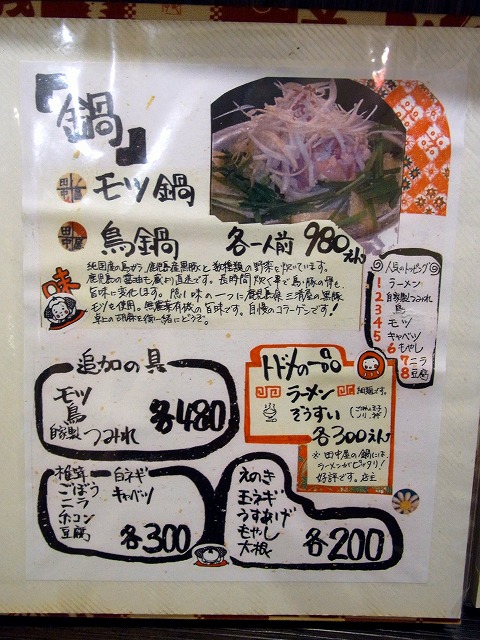 『鍋』
田中屋 モツ鍋
田中屋 鳥鍋 各一人前 980えん
味
純国産の鳥がら、鹿児島産黒豚と数種類の野菜を炊いています。
鹿児島の醤油も蔵より直送です。長時間炊く事で鳥・豚の骨も、
旨味に変化します。隠し味の一つに鹿児島県三清屋の黒豚
モツを使用。無農薬有機の旨味です。自慢のコラーゲンです!
卓上の胡麻を御一緒にどうぞ。
人気のトッピング
1 ラーメン
2 自家製つみれ
3 鳥
4 モツ
5 キャベツ
6 もやし
7 ニラ
8 豆腐
追加の具
モツ
鳥
自家製つみれ
各480
トドメの一品
ラーメン 細麺です。
ぞうすい (ごはん・玉子・のり・ネギ)
各300えん
※田中屋の鍋には、
ラーメンがピッタリ!
好評です。店主
椎茸
ごぼう
ニラ
水コン
豆腐
白ネギ
キャベツ
各300
えのき
玉ネギ
うすあげ
もやし
大根
各200